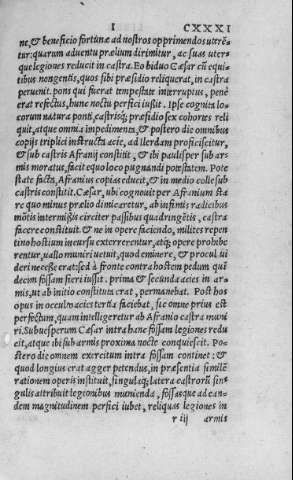 I CXXXI
ne, & beneficio fortunæ ad nostros opprimendos uterẽ
tur: quarum aduentu prælium dirimitur, ac suas uters
que legiones reducit in castra. Eo biduo Cæsar cũ equi=
tibus nongentis, quos sibi præsidio reliquerat, in castra
peruenit. pons qui fuerat tempestate interruptus, penè
erat refectus, hunc noctu perfici iussit. Ipse cognita lo=
corum natura ponti, castrisq; præsidio sex cohortes reli
quit, atque omnia impedimenta, & postero die omnibus
copijs triplici instructa acie, ad Ilerdam proficiscitur,
& sub castris Afranij constitit, & ibi paulisper sub ar=
mis moratus, facit æquo loco pugnandi potestatem. Pote
state facta, Afranius copias educit, & in medio colle sub
castris constitit. Cæsar, ubi cognouit per Afranium sta
re quo minus prælio dimicaretur, ab infimis radicibus
mõtis intermißis circiter passibus quadringẽtis, castra
facere constituit. & ne in opere faciendo, milites repen
tino hostium incursu exterrerentur, atq; opere prohibe
rentur, uallo muniri uetuit, quod eminere, & procul ui
deri necesse erat: sed à fronte contra hostem pedum quĩ
decim fossam fieri iussit. prima & secunda acies in ar=
mis, ut ab initio constituta erat, permanebat. Post hos
opus in occulto acies tertia faciebat, sic omne prius est
perfectum, quam intelligeretur ab Afranio castra muni
ri. Sub uesperum Cæsar intra hanc fossam legiones redu
cit, atque ibi sub armis proxima nocte conquiescit. Po=
stero die omnem exercitum intra fossam continet: &
quod longius erat agger petendus, in præsentia similẽ
rationem operis instituit, singulaq; latera castrorũ sin=
gulis attribuit legionibus munienda, fossasque ad ean=
dem magnitudinem perfici iubet, reliquas legiones in
r iij armis